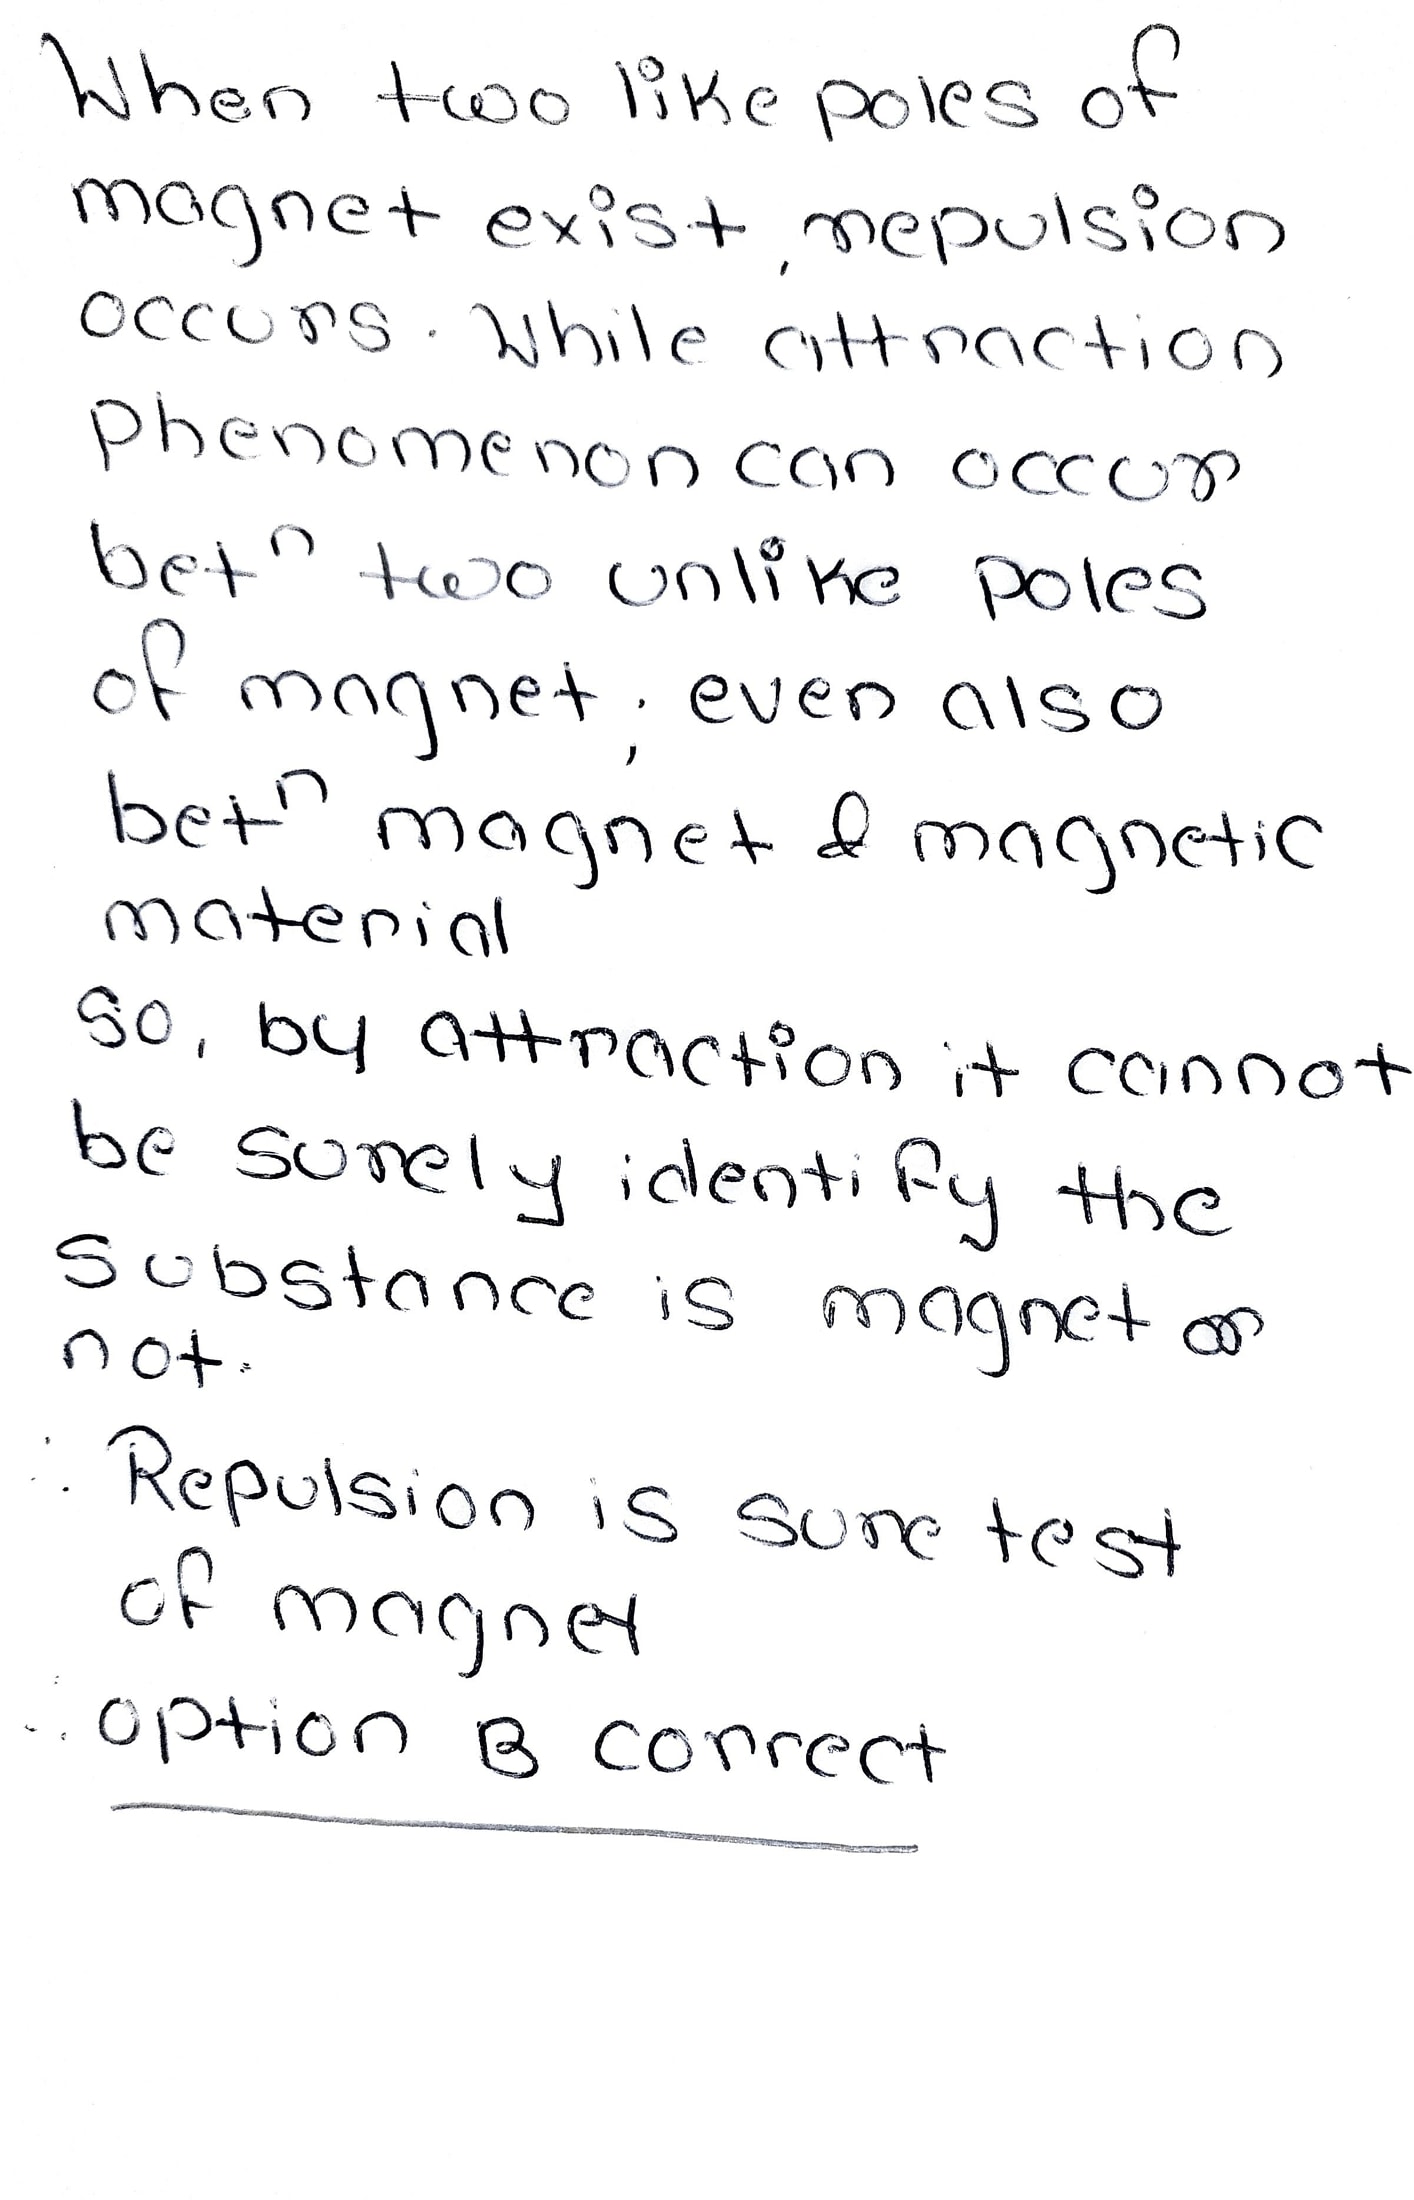 When two like poles of
magnet exist, repulsion
occurs. While attraction
phenomenon can occur
betⁿ two unlike poles
of magnet, even also
betⁿ magnet & magnetic
material
So, by attraction it cannot
be surely identify the
substance is magnet or
not.
∴ Repulsion is sure test
of magnet
∴ option B correct